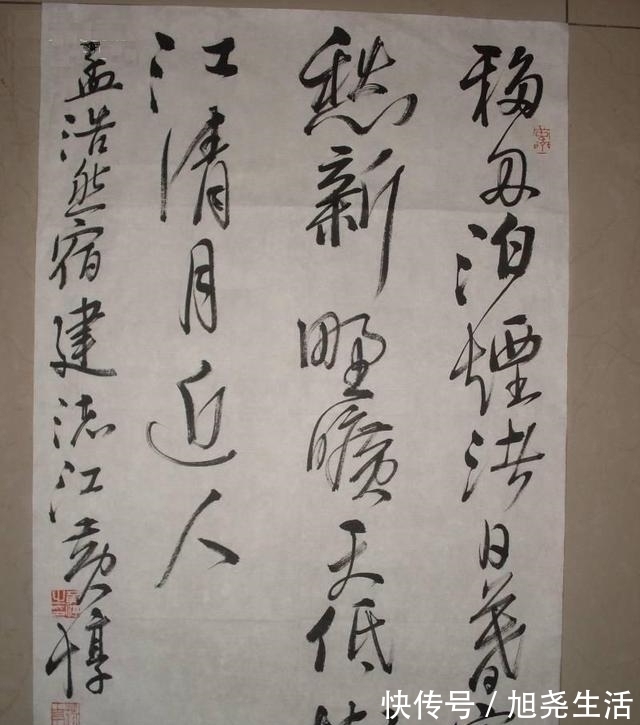 移舟泊煙渚日暮
愁新野曠天低
江清月近人
孟浩然宿建德江黄惇
快传号/旭尧生活